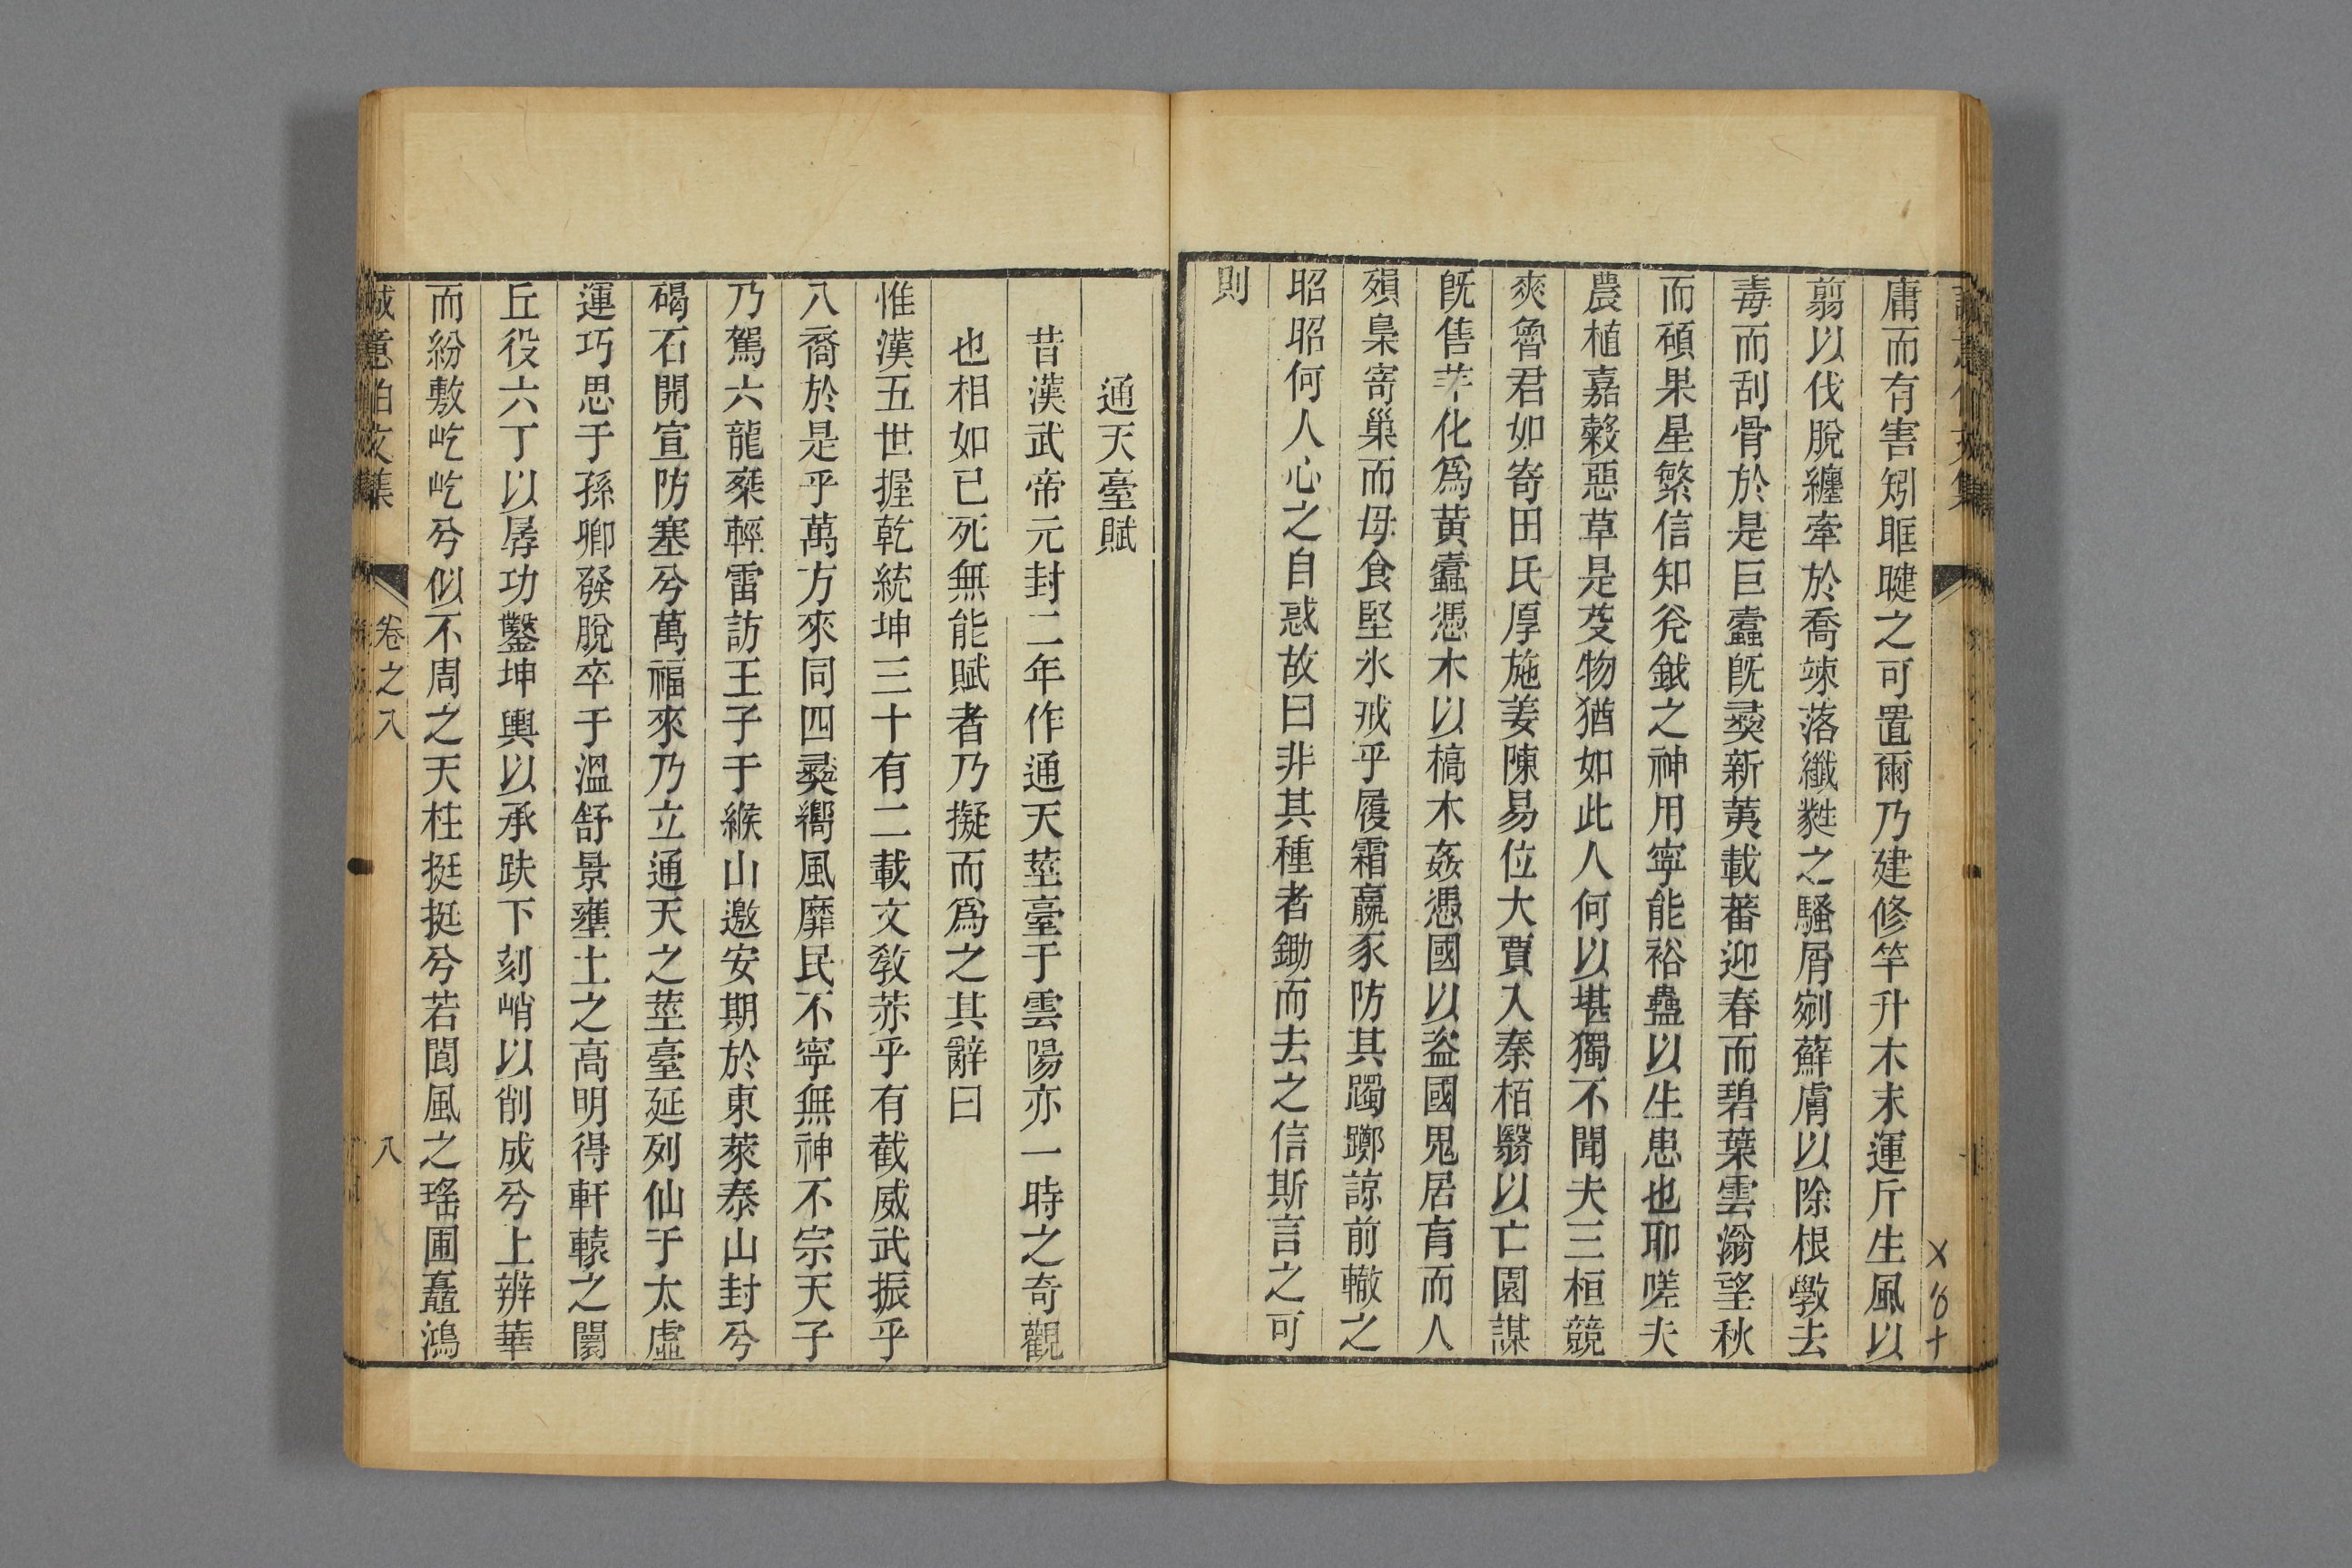 庸而有害矧眶睷之可置爾乃建修竿升木末運斤生風以
翦以伐脫纏牽於喬竦落纖甤之騷屑剜蘚膚以除根斆去
毒而刮骨於是巨蠹旣羠新荑載蕃迎春而碧葉雲滃望秋
而碩果星繁信知斧鉞之神用寧能裕蠱以生患也耶嗟夫
農植嘉穀惡草是芟物猶如此人何以堪獨不聞夫三桓競
爽魯君如寄田氏厚施姜陳易位大賈入秦栢翳以亡園謀
旣售芊化爲黃蠹憑木以槁木姦憑國以盜國鬼居肓而人
殞梟寄巢而母食堅氷戒乎履霜羸豕防其躅躑諒前轍之
昭昭何人心之自惑故曰非其種者鋤而去之信斯言之可
則
通天臺賦
昔漢武帝元封二年作通天莖臺于雲陽亦一時之奇觀
也相如已死無能賦者乃擬而爲之其辭曰
惟漢五世握乾統坤三十有二載文敎茀乎有截威武振乎
八裔於是乎萬方來同四彝嚮風靡民不寧無神不宗天子
乃駕六龍椉輕雷訪王子于緱山邀安期於東萊泰山封兮
碣石開宣防塞兮萬福來乃立通天之莖臺延列仙于太虛
運巧思于孫卿發脫卒于溫舒景壅土之高明得軒轅之闤
丘役六丁以孱功鑿坤輿以承趺下刻峭以削成兮上辨華
而紛敷屹屹兮似不周之天柱挺挺兮若閬風之瑤圃矗鴻
誠意伯文集 卷之八 八